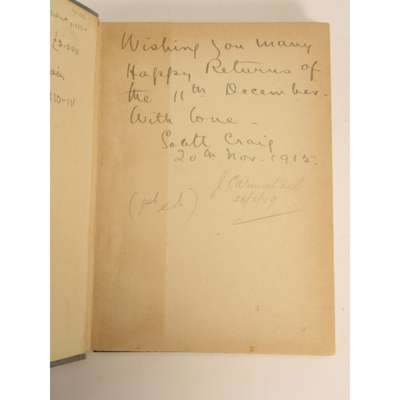 Wishing you many
Happy Returns of
the 11th December.
With love -
Scott Craig
20th Nov. 1915.
J Carmichael
(1st ed.)